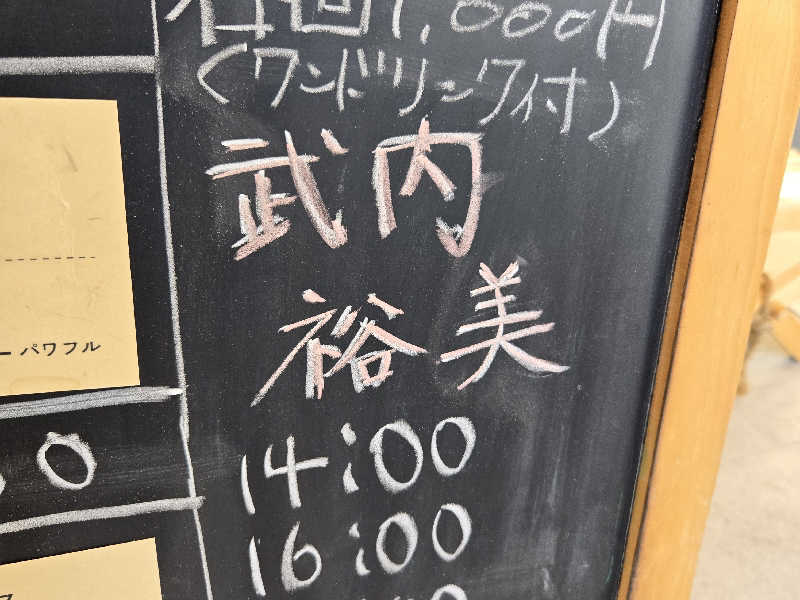 各回1,000円
(ワンドリンク付)
武内
裕美
14:00
16:00
ーパワフル
00